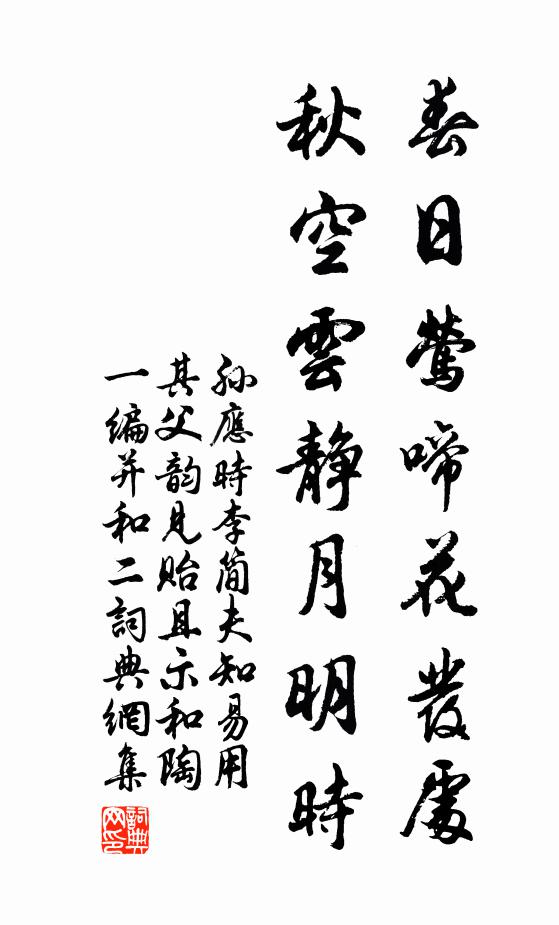 春日鶯啼花發處
秋空雲靜月明時
孫應時李簡夫知易用
其父韵見貽且示和陶
一編并和二詞典網集
詞典
网印